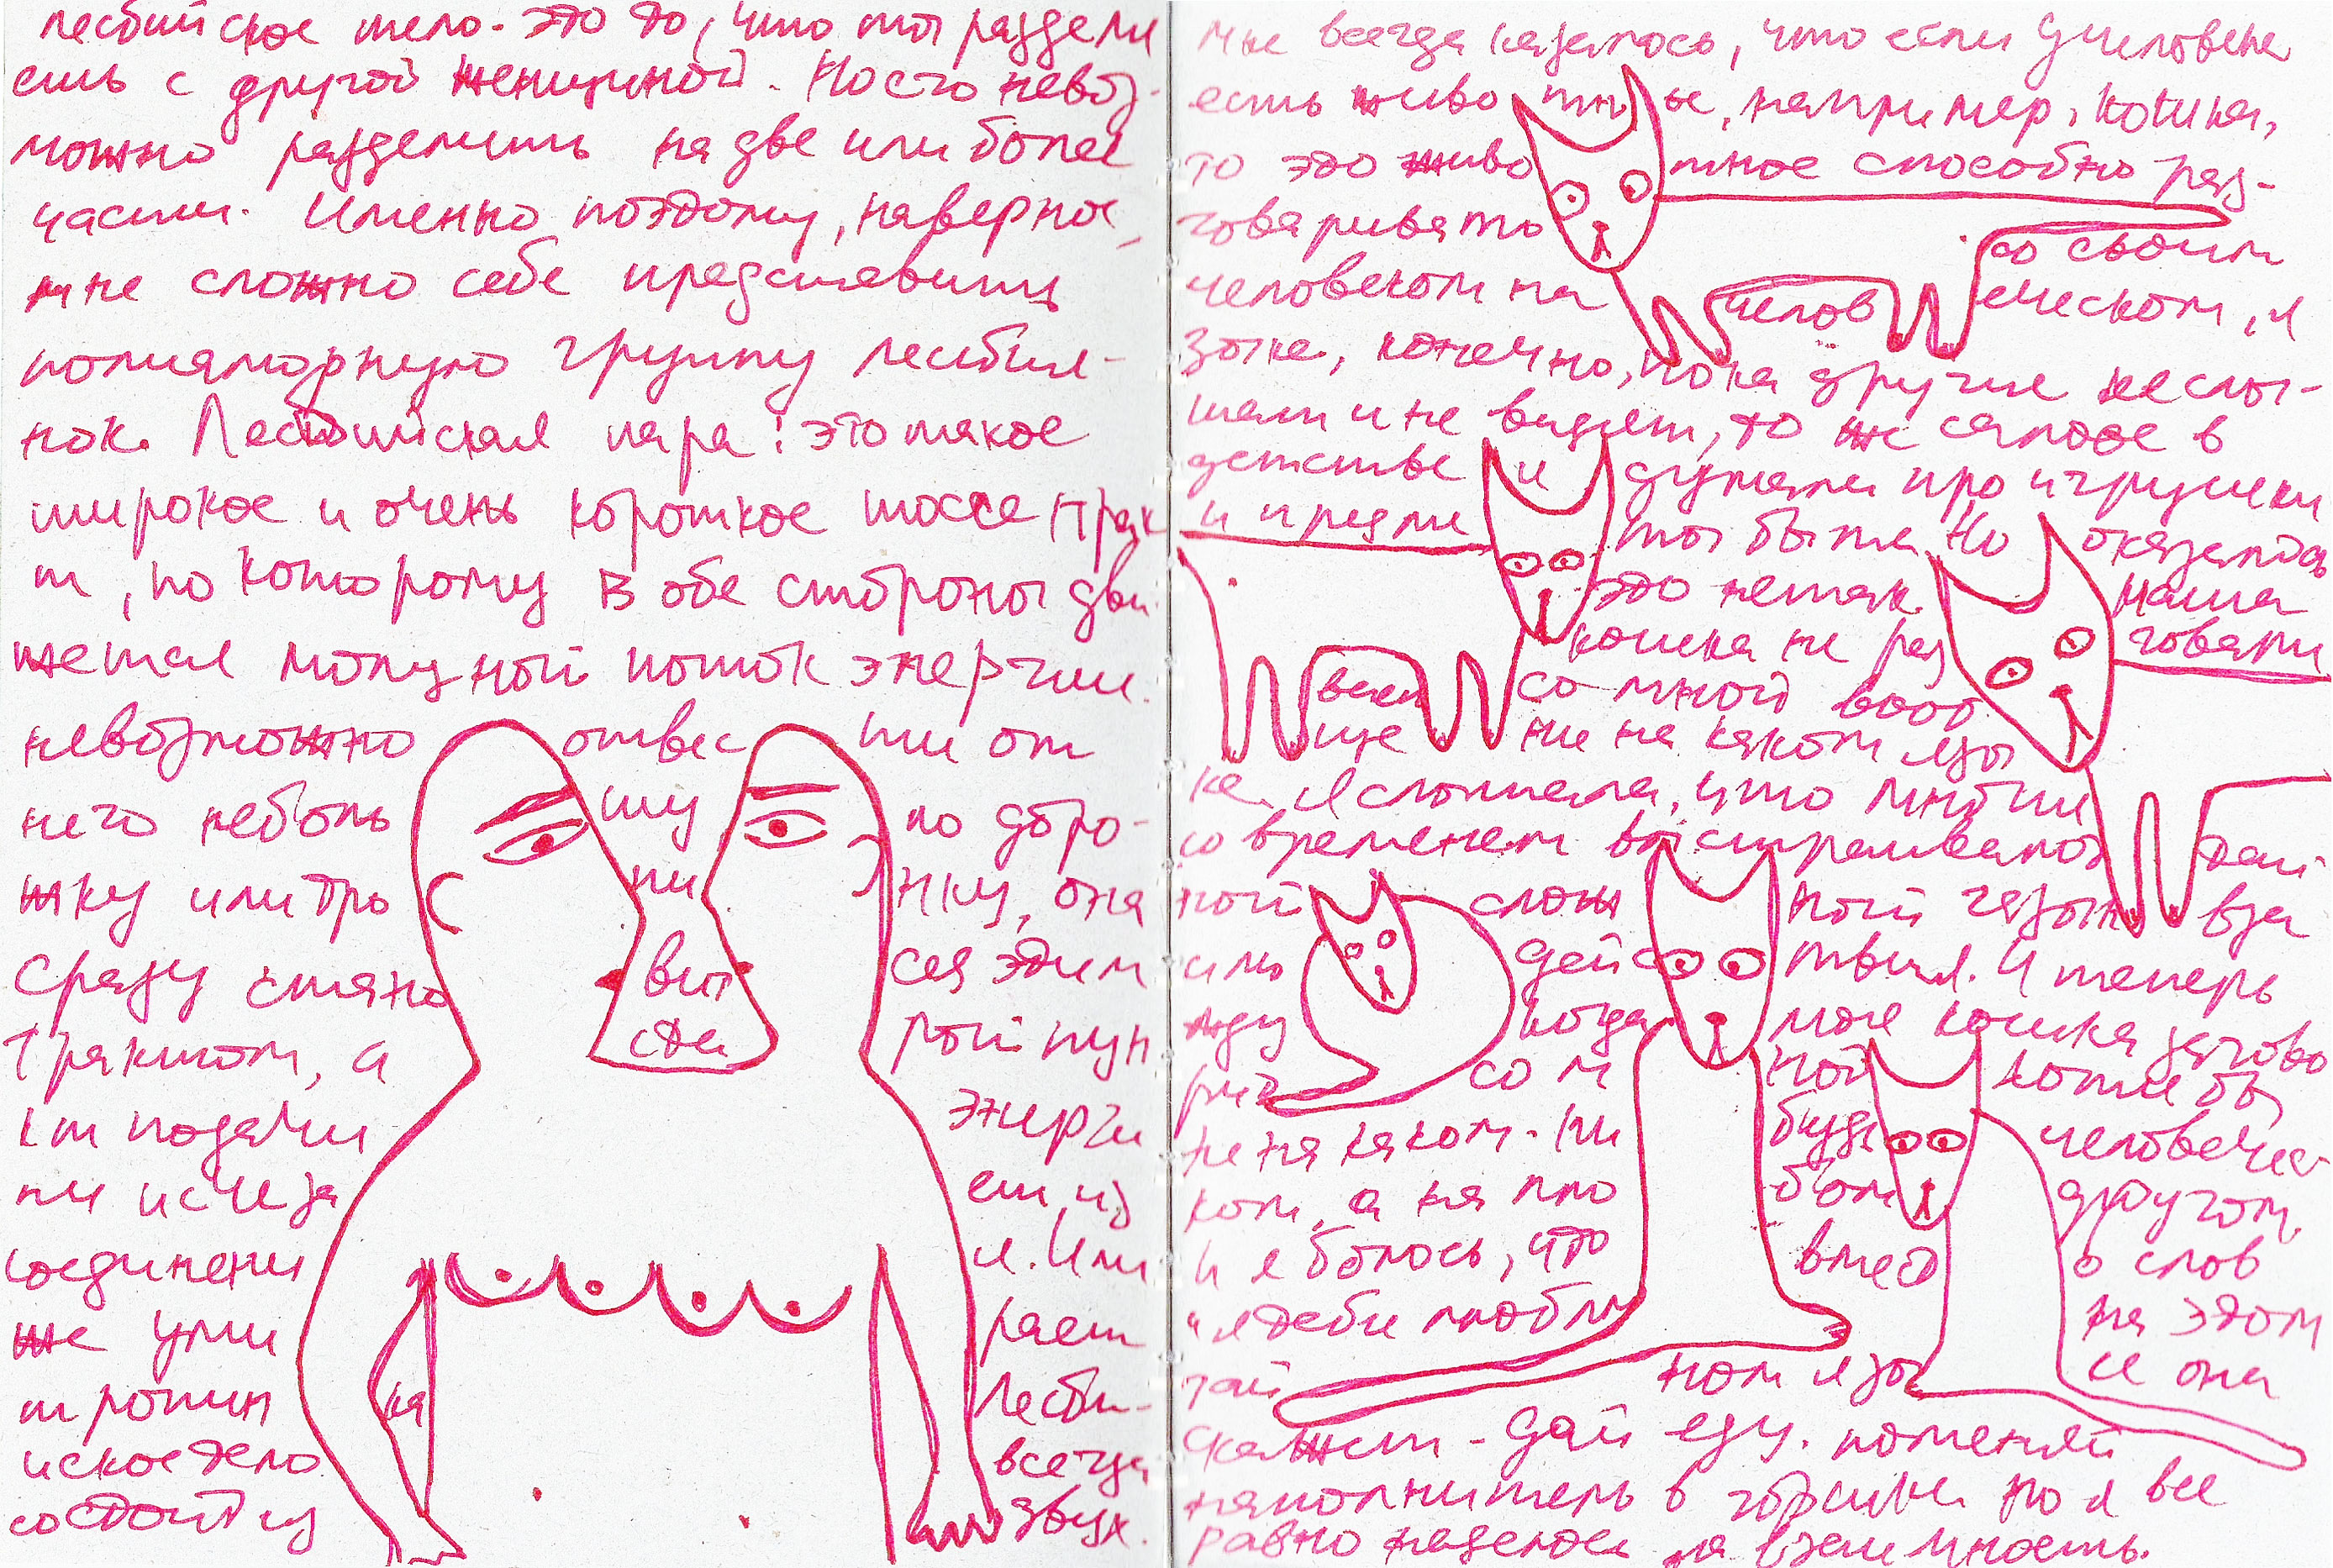 лесбийское тело - это то, что ты раздели
ешь с другой женщиной. Но его невоз-
можно разделить на две или более
части. Именно поэтому, наверное,
мне сложно себе представить
полиаморную группу лесбия-
нок. Лесбийская пара: это такое
широкое и очень короткое шоссе трак
т, по которому в обе стороны дви
жется мощный поток энергии.
невозможно отвес ти от
него неболь шу ю доро-
жку или тро пи нку, она
сразу стано вит ся этим
трактом, а ста рый пун
кт подачи энерги
ти исчеза ет из
соединени я. Или
же уми рает
тропин ка Лесби-
йское тело всегда
состоит из двух.
мне всегда казалось, что если у человека
есть живо тн ые, например, кошка,
то это живо тное способно раз-
говаривать со своим
человеком на челов еческом, я
зыке, конечно, пока другие не слы-
шат и не видят, то же самое в
детстве я думала про игрушки
и предме ты быта. Но оказалось
это не так. наша
кошка не раз говари
вает со мной вооб
ще ни на каком язы
ке. Я слышала, что многие
со временем выстраивают тай
ной слож ный жизн вза
имо дейс твия. И теперь
жду когда моя кошка загово
рит со м ной хотя бы
не на каком-ни будь человечес-
ком, а на лю бом другом.
и я боюсь, что вмест о слов
"я тебя люблю на этом
тай ном язы ке она
скажет - дай еду. поменяй
наполнитель в горшке но я все
равно надеюсь на взаимность.